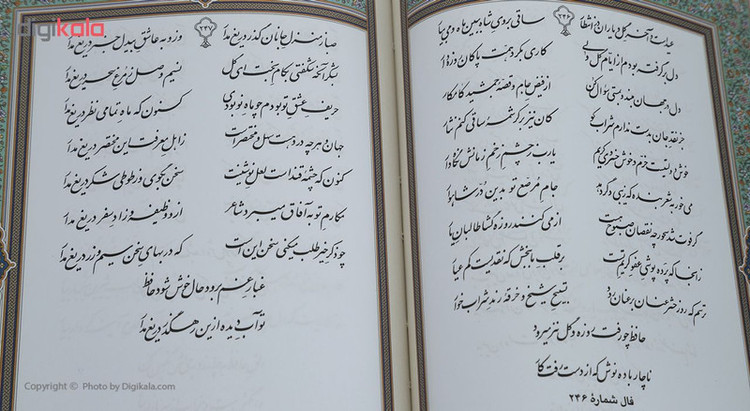 digikala
۲۴۶
عید است و آخر گل و یاران در انتظار ساقی به روی شاه ببین ماه و می بیار
دل برگرفته بودم از ایام گل ولی کاری بکرد همت پاکان روزه‌دار
دل در جهان مبند و به مستی سؤال کن از فیض جام و قصه جمشید کامکار
جز نقد جان به دست ندارم شراب کو کان نیز بر کرشمه ساقی کنم نثار
خوش دولتیست خرم و خوش خسروی کریم یارب ز چشم زخم زمانش نگاه‌دار
می خور به شعر بنده که زیبی دگر دهد جام مرصع تو بدین در شاهوار
گر فوت شد سحور چه نقصان صبوح هست از می کنند روزه گشا طالبان یار
زانجا که پرده پوشی عفو کریم تست بر قلب ما ببخش که نقدیست کم عیار
ترسم که روز حشر عنان بر عنان رود تسبیح شیخ و خرقه رند شراب خوار
حافظ چو رفت روزه و گل نیز می رود
ناچار باده نوش که از دست رفت کار
فال شمارهٔ ۲۴۶
۲۴۷
صبا ز منزل جانان گذر دریغ مدار وزو به عاشق بیدل خبر دریغ مدار
بشکر آنکه شکفتی بکام بخت ای گل نسیم وصل ز مرغ سحر دریغ مدار
حریف عشق تو بودم چو ماه نو بودی کنون که ماه تمامی نظر دریغ مدار
جهان و هر چه در و هست سهل و مختصر است ز اهل معرفت این مختصر دریغ مدار
کنون که چشمه قند است لعل نوشینت سخن بگوی و ز طوطی شکر دریغ مدار
مکارم تو به آفاق می برد شاعر ازو وظیفه و زاد سفر دریغ مدار
چو ذکر خیر طلب میکنی سخن این است که در بهای سخن سیم و زر دریغ مدار
غبار غم برود حال خوش شود حافظ
تو آب دیده ازین رهگذر دریغ مدار
Copyright © Photo by Digikala.com